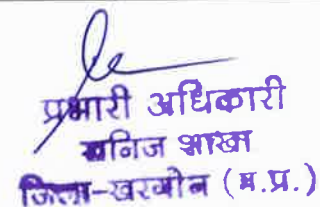 प्रभारी अधिकारी
खनिज शाखा
जिला-खरगोन (म.प्र.)